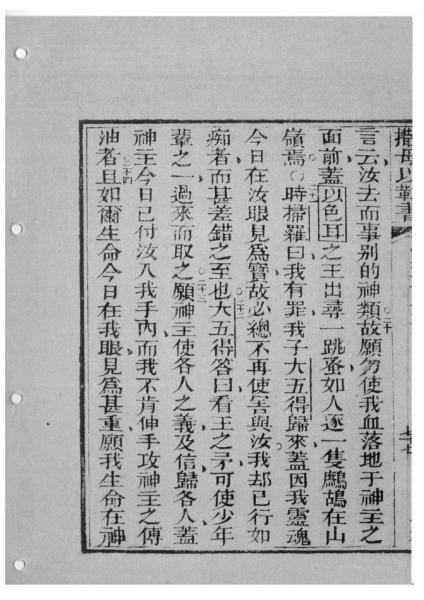 撒母以勒書
言云汝去而事别的神類故願勿使我血落地于神主之
面前蓋以色耳之王出尋一跳蚤如人逐一隻鷓鴣在山
嶺焉○時掃羅曰我有罪我子大五得歸來蓋因我靈魂
今日在汝眼見爲寶故必總不再使害與汝我却已行如
痴者而甚差錯之至也大五得答曰看王之矛可使少年
輩之一過來而取之願神主使各人之義及信歸各人蓋
神主今日已付汝入我手內而我不肯伸手攻神主之傅
油者且如爾生命今日在我眼見爲甚重願我生命在神